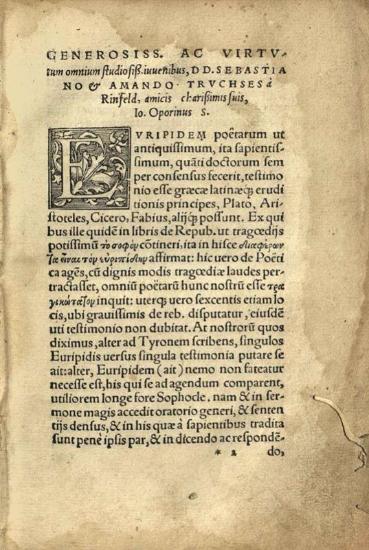 GENEROSISS. AC VIRTV-
tum omnium studiosiß. iuuenibus, DD. SEBASTIA
NO & AMANDO TRVCHSES à
Rinfeld, amicis charißimis suis,
Io. Oporinus S.
EVRIPIDEM poëtarum ut
antiquissimum, ita sapientis-
simum, quãti doctorum sem
per consensus fecerit, testimo
nio esse græcæ latinæq; erudi
tionis principes, Plato, Ari-
stoteles, Cicero, Fabius, alijq; possunt. Ex qui
bus ille quidẽ in libris de Repub. ut tragœdijs
potissimũ τὸ σοφὸν cõtineri, ita in hisce διαφέρειν
affirmat: hic uero de Poëti
ca agẽs, cũ dignis modis tragœdiæ laudes per-
tractasset, omniũ poëtarũ hunc nostrũ esse τρα
γικώτατον inquit: uterq; uero sexcentis etiam lo
cis, ubi grauissimis de reb. disputatur, eiusdẽ
uti testimonio non dubitat. At nostrorũ quos
diximus, alter ad Tyronem scribens, singulos
Euripidis uersus singula testimonia putare se
ait: alter, Euripidem (ait) nemo non fateatur
necesse est, his qui se ad agendum comparent,
utiliorem longe fore Sophocle. nam & in ser-
mone magis accedit oratorio generi, & senten
tijs densus, & in his quæ à sapientibus tradita
sunt penè ipsis par, & in dicendo ac respondẽ-
* 2 do,